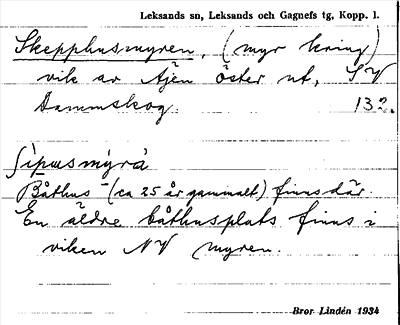 Leksands sn, Leksands och Gagnefs tg, Kopp. l.
Skepphusmyren, (myr kring)
vik av Äjen öster ut, SV
Dammskog. 132.
Båthus - (ca 25 år gammalt) finns där.
En äldre båthusplats finns i
viken NV myren.
Bror Lindén 1934